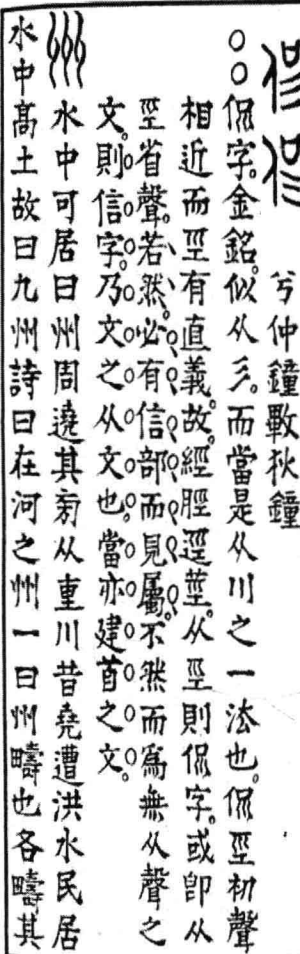 兮仲鐘斁狄鐘
侃字。金銘。似从彡。而當是从川之一法也。侃巠初聲
相近而巠有直義。故。經脛逕莖。从巠則侃字。或卽从
巠省聲。若然。必有信部而見屬。不然而爲無从聲之
文。則信字。乃文之从文也。當亦建首之文。
州水中可居曰州周遶其旁从重川昔堯遭洪水民居
水中高土故曰九州詩曰在河之州一曰州疇也各疇其